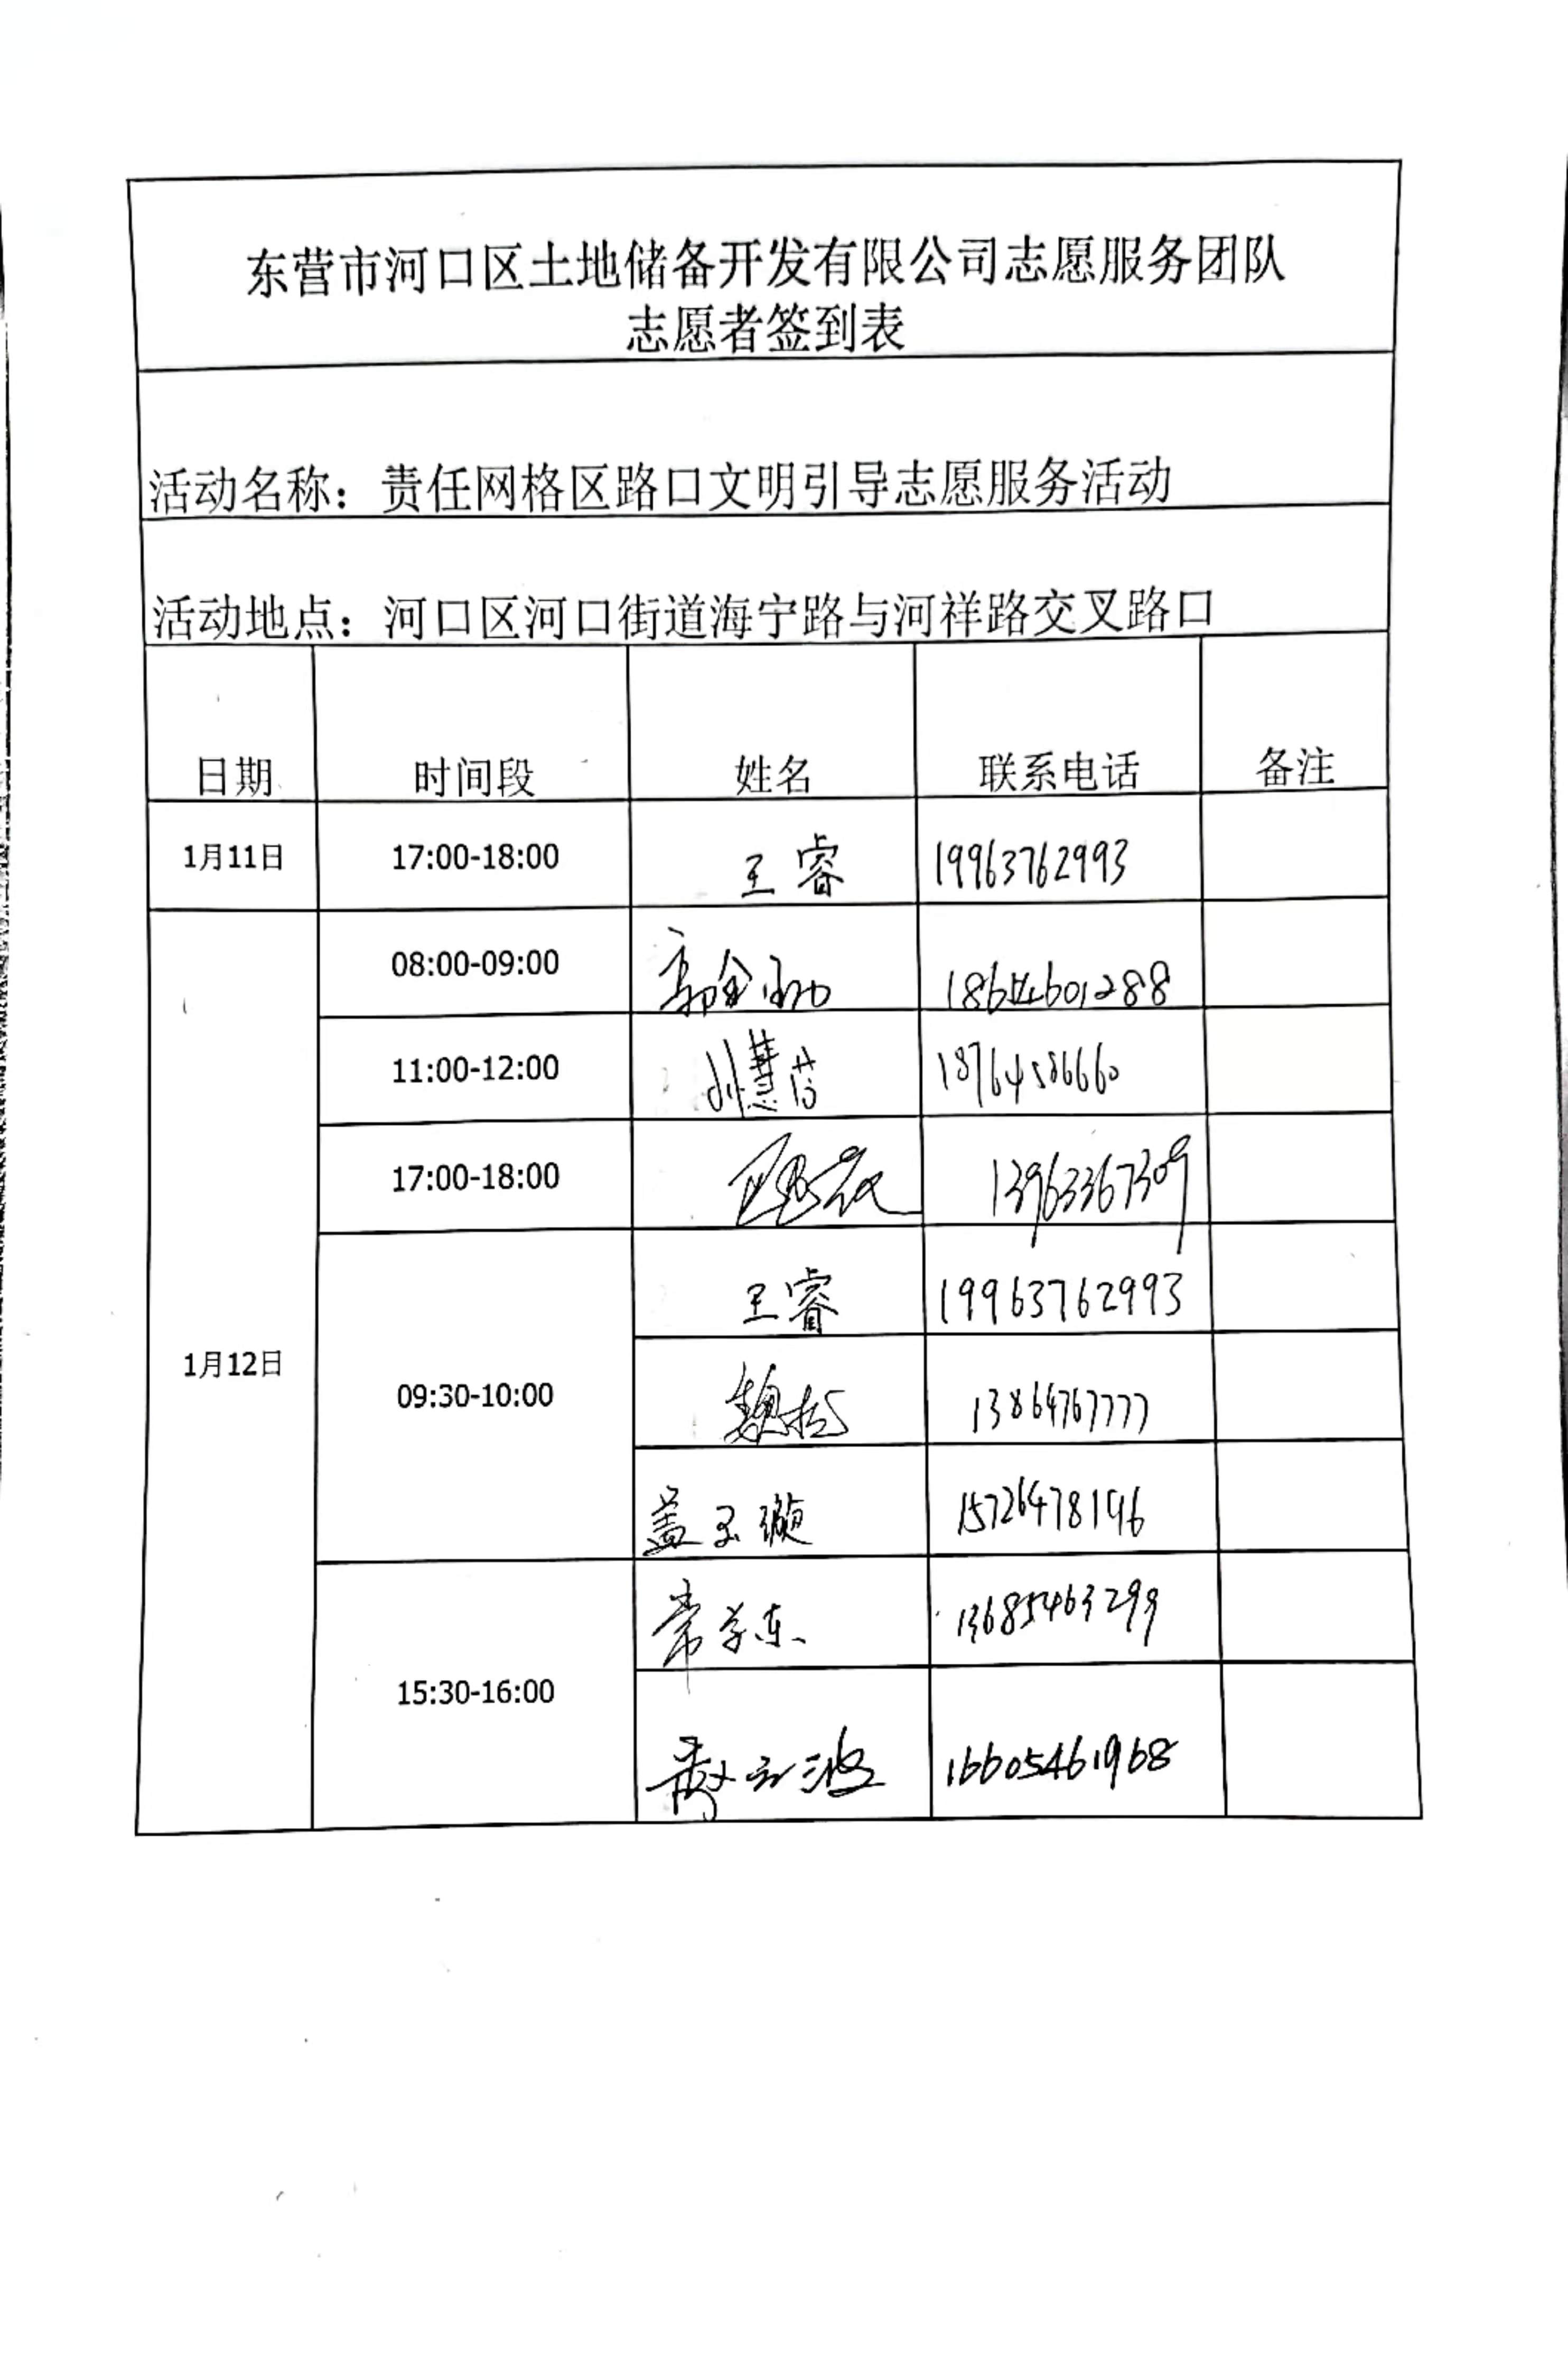 东营市河口区土地储备开发有限公司志愿服务团队
志愿者签到表
活动名称：责任网格区路口文明引导志愿服务活动
活动地点：河口区河口街道海宁路与河祥路交叉路口
日期 时间段 姓名 联系电话 备注
1月11日 17:00-18:00 王睿 19963762993
1月12日
08:00-09:00 186
11:00-12:00 刘慧 18764586660
17:00-18:00 13963367309
09:30-10:00
王睿 19963762993
魏 13864767777
盖玉璇 15726478196
15:30-16:00
常学东 13685463299
波 16605461968